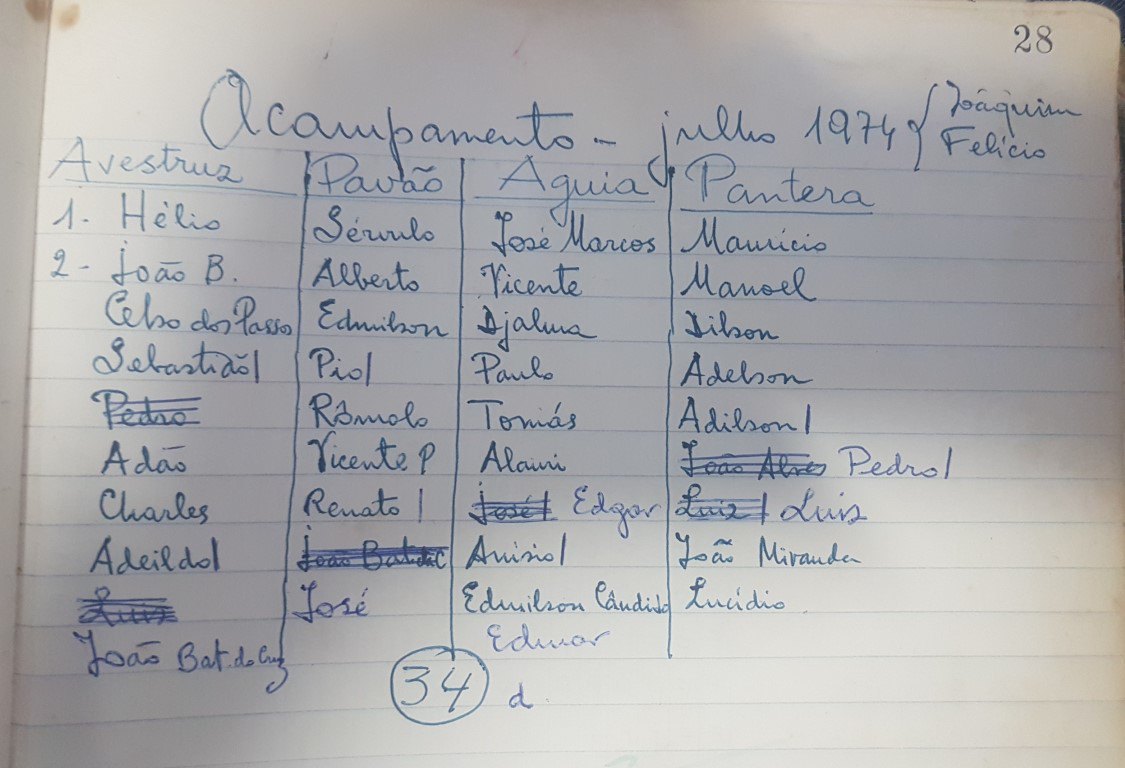 28
Acampamento - julho 1974 { Joáquim
Felício
Avestruz Pavão Aguia Pantera
1. Hélio Sérvulo José Marcos Maurício
2 - João B. Alberto Vicente Manoel
Celso dos Passo Edmilson Djalma Dilson
Sebastião| Pio| Paulo Adelson
Pedro Rômolo Tomás Adilson|
Adão Vicente P Alaini João Alves Pedro|
Charles Renato | José| Edgar Luiz | Luis
Adeildo| João Bat. da C Anísio| João Miranda
Luis José Edmilson Cândido Lucídio
João Bat. da Cruz Edmar
34 d.